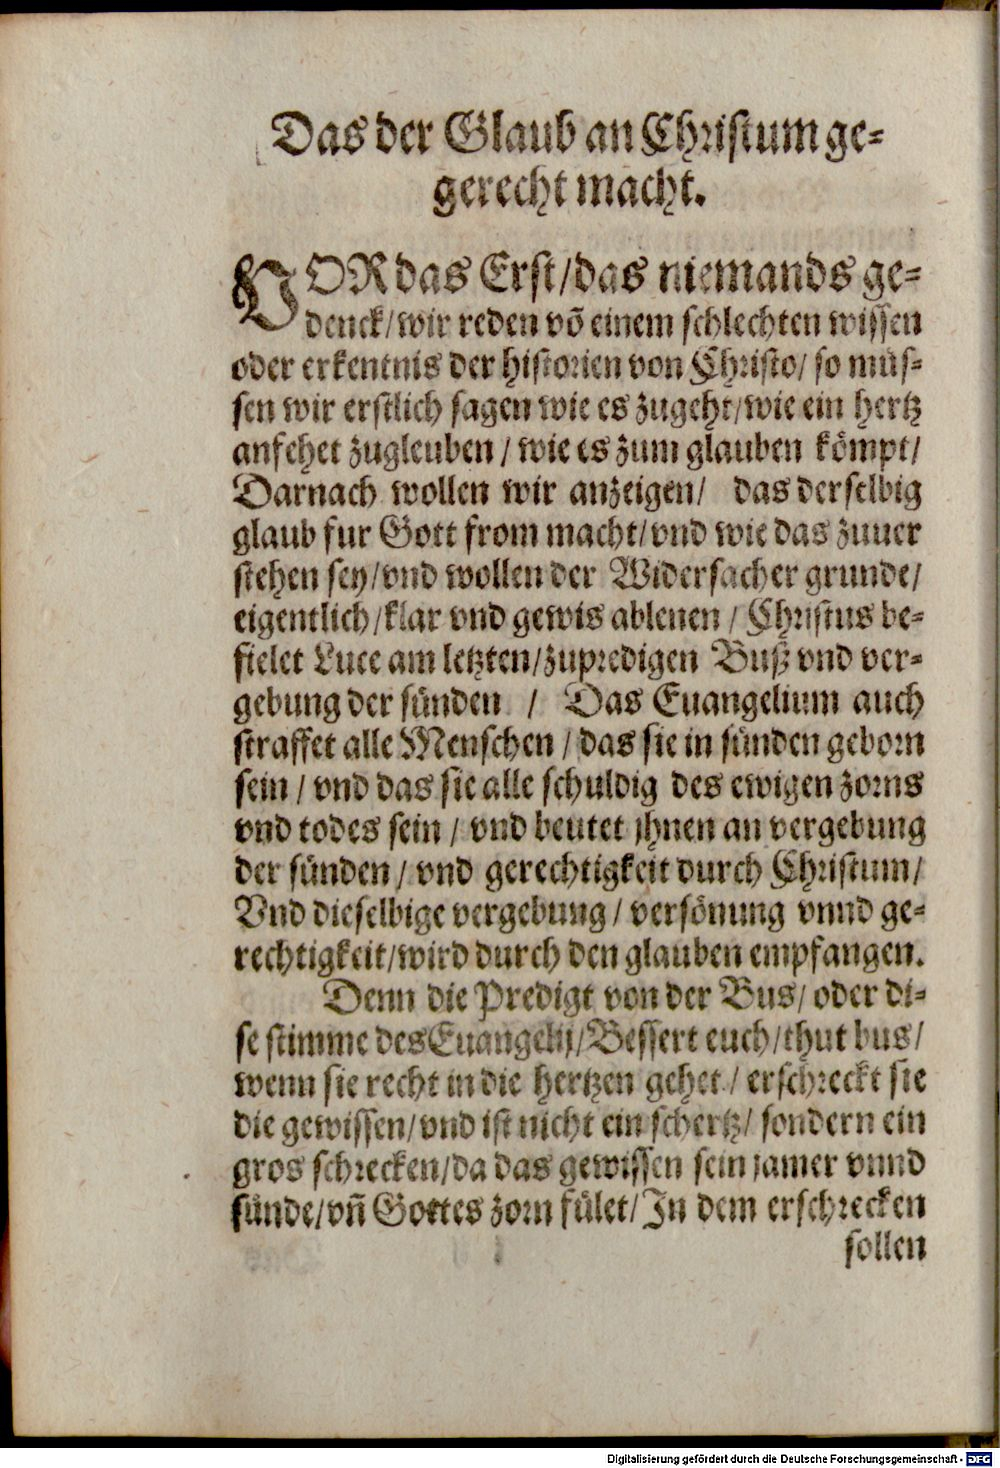 Das der Glaub an Christum ge⸗
gerecht macht.
VOR das Erst/das niemands ge⸗
denck/wir reden võ einem schlechten wissen
oder erkentnis der historien von Christo/ so müs⸗
sen wir erstlich sagen wie es zugeht/wie ein hertz
anfehet zugleuben / wie es zum glauben kömpt/
Darnach wollen wir anzeigen/ das derselbig
glaub fur Gott from macht/vnd wie das zuuer
stehen sey/vnd wollen der Widersacher grunde/
eigentlich/klar vnd gewis ablenen / Christus be⸗
fielet Luce am letzten/zupredigen Buß vnd ver⸗
gebung der sünden / Das Euangelium auch
straffet alle Menschen / das sie in sünden geborn
sein / vnd das sie alle schuldig des ewigen zorns
vnd todes sein / vnd beutet jhnen an vergebung
der sünden / vnd gerechtigkeit durch Christum/
Vnd dieselbige vergebung / versönung vnnd ge⸗
rechtigkeit/wird durch den glauben empfangen.
Denn die Predigt von der Bus/ oder di⸗
se stimme des Euangelij/Bessert euch/thut bus/
wenn sie recht in die hertzen gehet / erschreckt sie
die gewissen/vnd ist nicht ein schertz/ sondern ein
gros schrecken/da das gewissen sein jamer vnnd
sünde/vñ Gottes zorn fület/In dem erschrecken
sollen
Digitalisierung gefördert durch die Deutsche Forschungsgemeinschaft - DFG